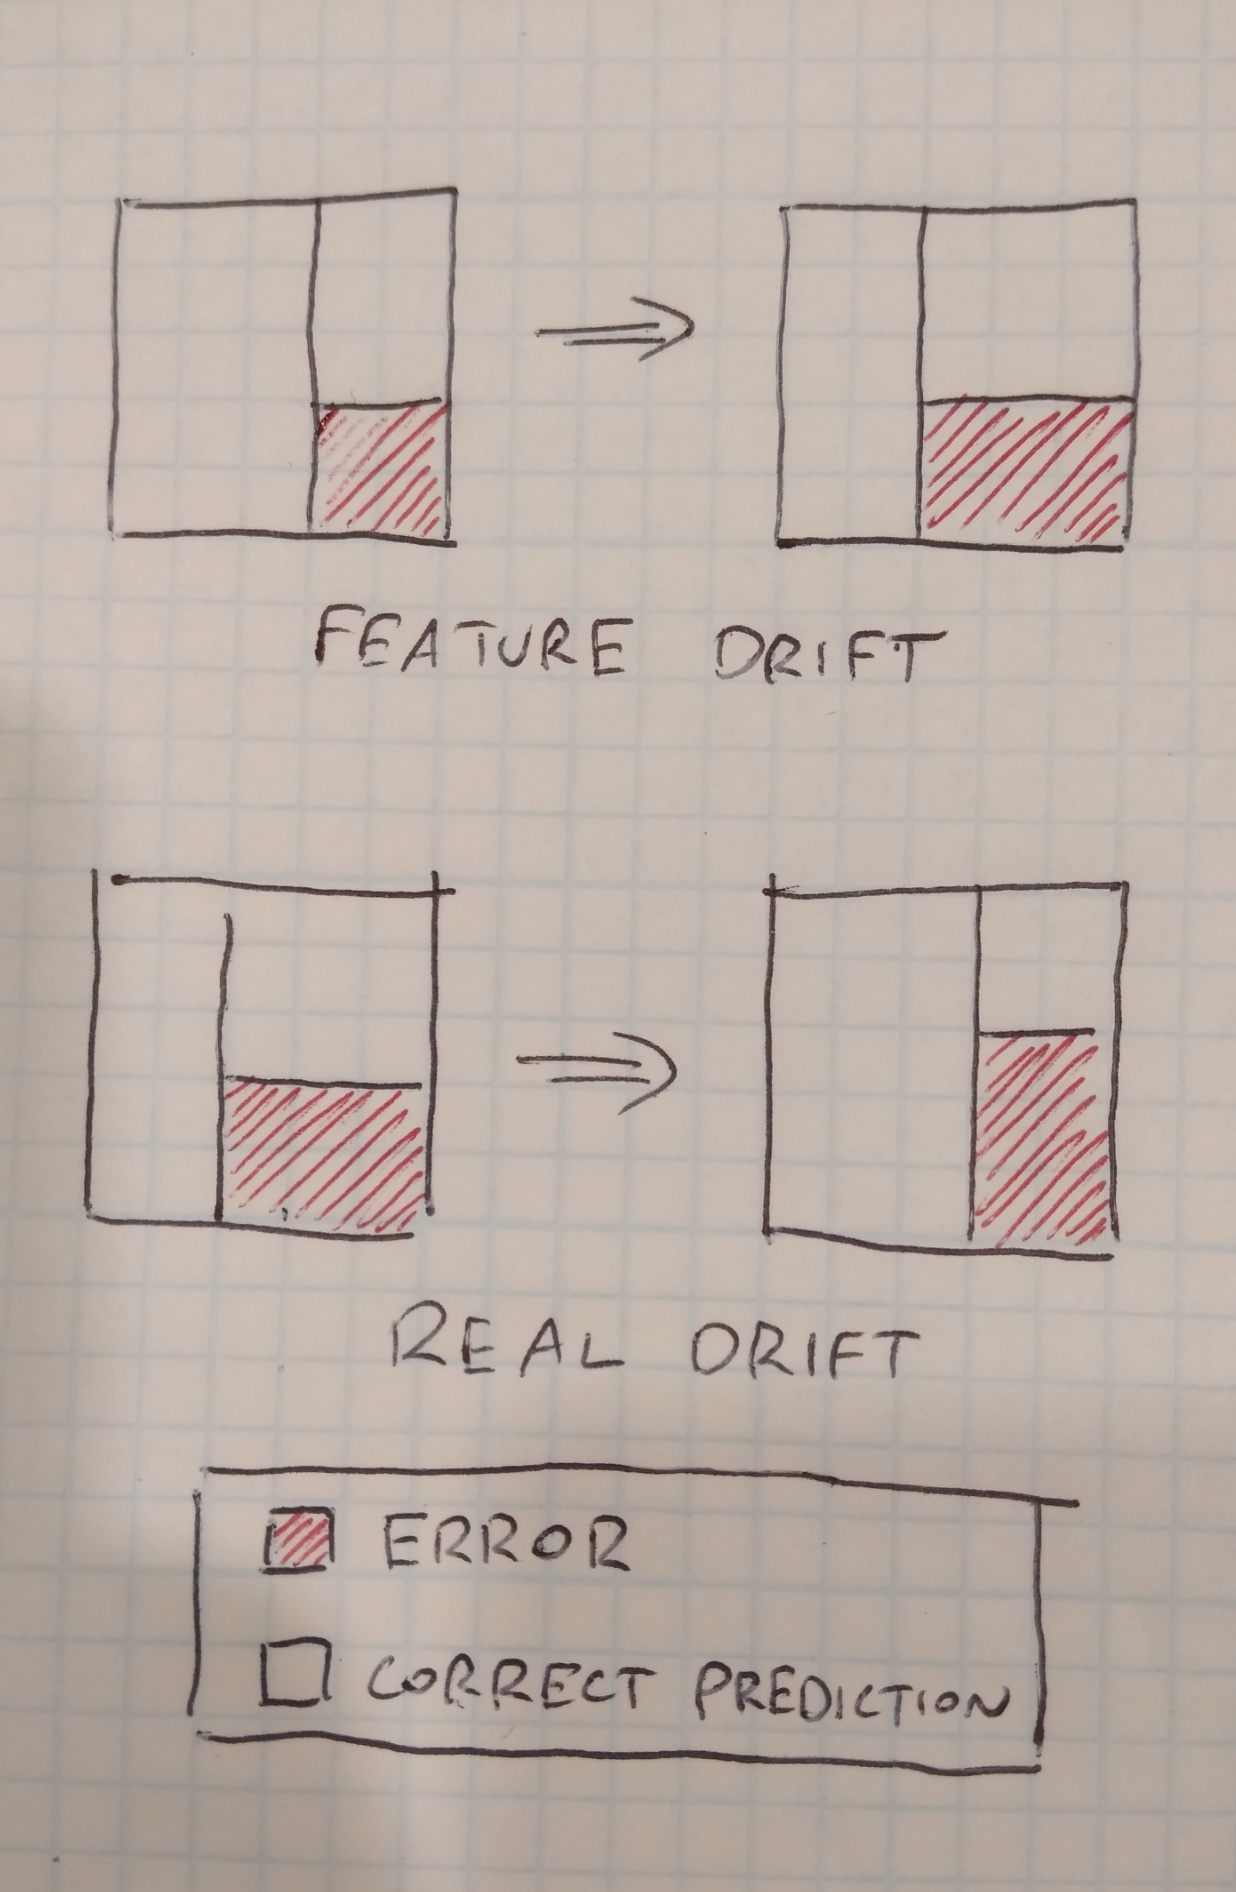 FEATURE DRIFT
REAL DRIFT
ERROR
CORRECT PREDICTION